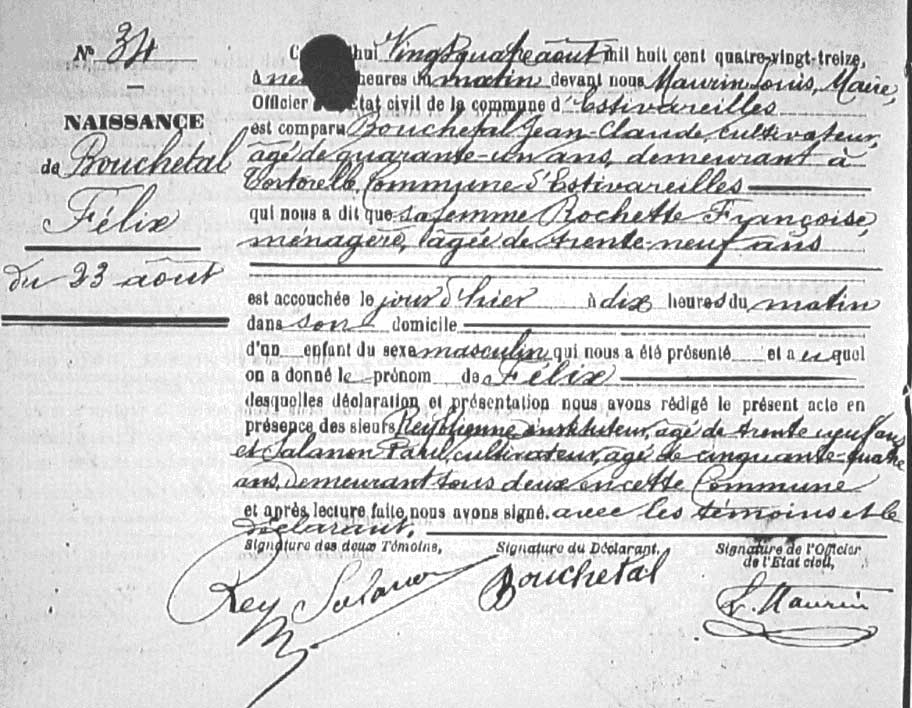 N° 34
NAISSANCE
de Bouchetal
Félix
du 23 août
C hui Vingt quatre août mil huit cent quatre-vingt-treize,
à ne heures du matin devant nous Maurin Louis, Maire,
Officier État civil de la commune d'Estivareilles
est comparu Bouchetal Jean-Claude, cultivateur,
âgé de quarante-un ans, demeurant à
Tortorelle, Commune d'Estivareilles
qui nous a dit que sa femme Rochette Françoise,
ménagère, âgée de trente neuf ans
est accouchée le jour d'hier à dix heures du matin
dans son domicile
d'un enfant du sexe masculin qui nous a été présenté et auquel
on a donné le prénom de Félix
desquelles déclaration et présentation nous avons rédigé le présent acte en
présence des sieurs Rey Etienne instituteur, âgé de trente neuf ans
et Salanon Paul, cultivateur, âgé de cinquante-quatre
ans, demeurant tous deux en cette Commune
et après lecture faite, nous avons signé. avec les témoins et le
déclarant.
Signature des deux Témoins, Signature du Déclarant, Signature de l'Officier
de l'Etat civil,
Rey Salanon Bouchetal L. Maurin